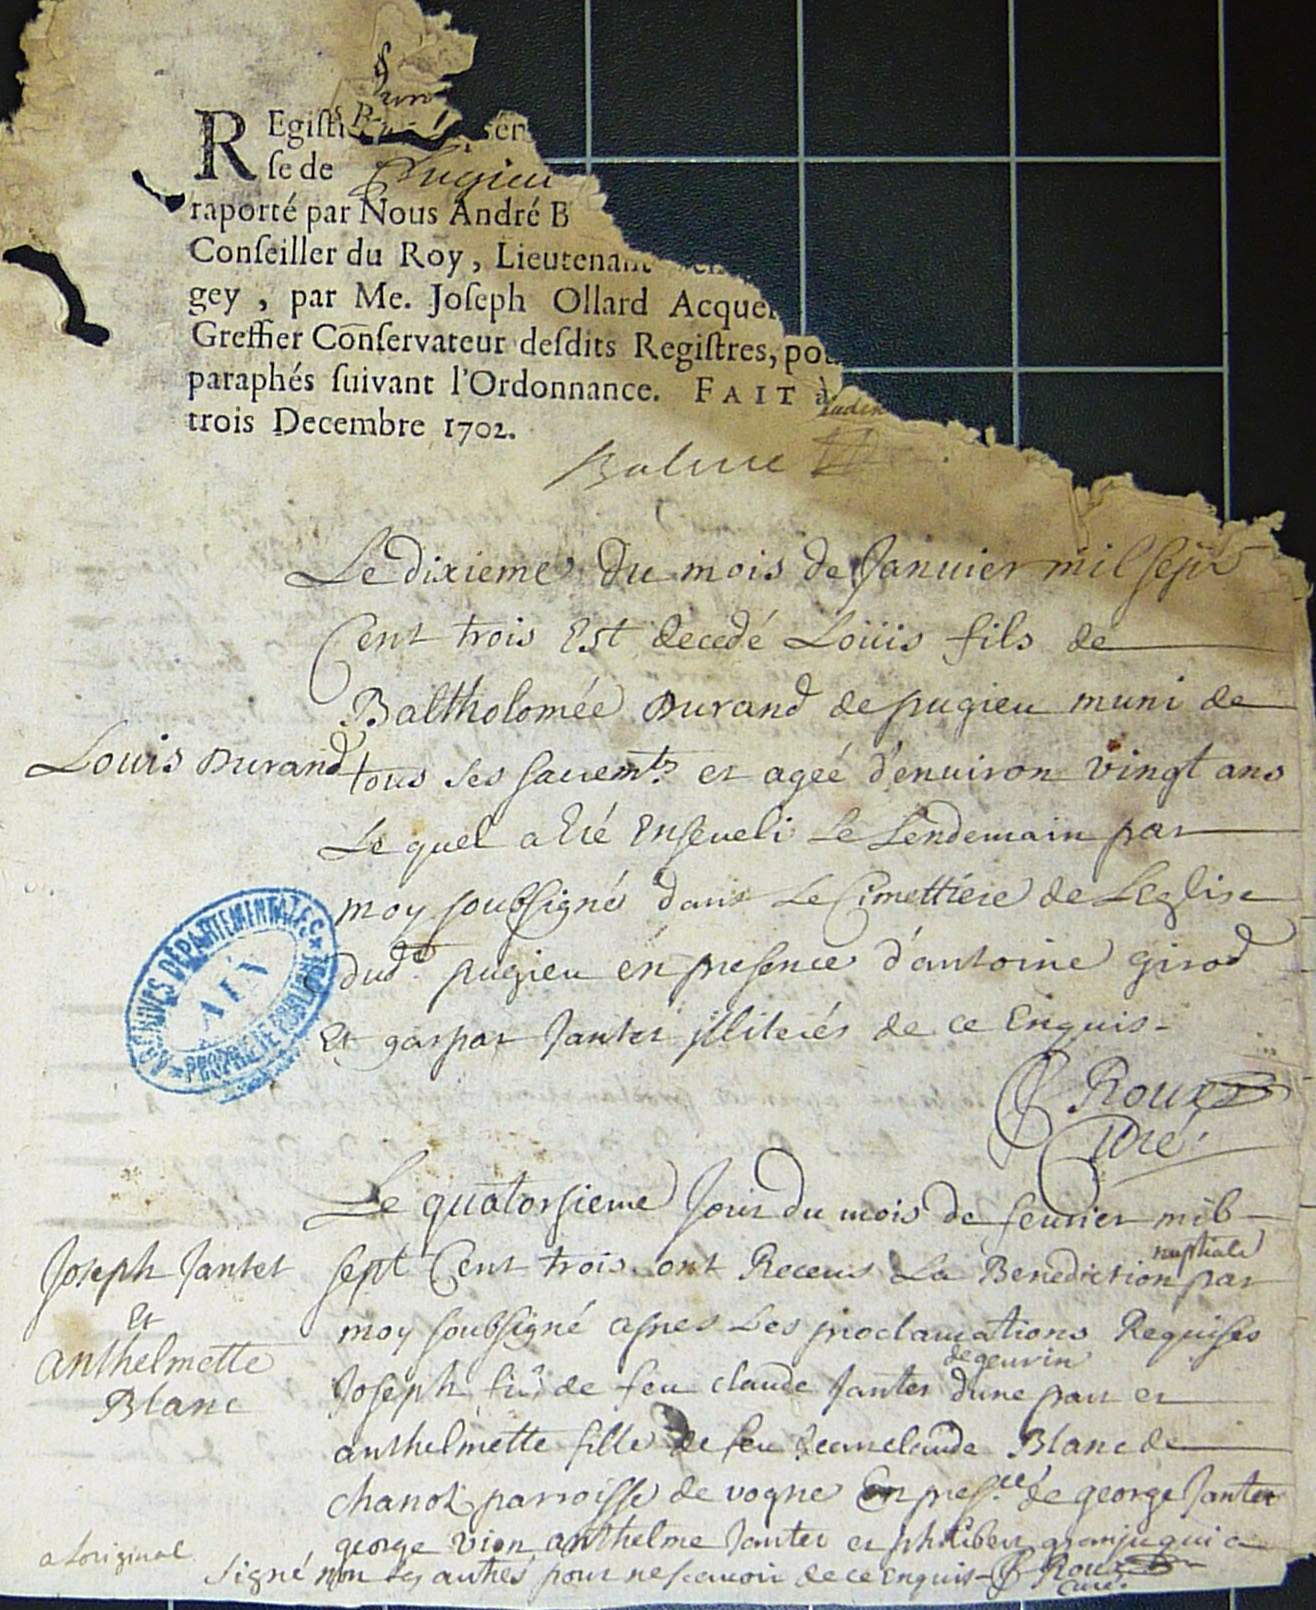 REgistr
se de Pugieu
raporté par Nous André B
Conseiller du Roy, Lieutenant
gey, par Me. Joseph Ollard Acquer
Greffier Conservateur desdits Registres, pou
paraphés suivant l'Ordonnance. FAIT à
trois Decembre 1702.
Le dixieme du mois de Januier mil sept
Cent trois Est decedé Loüis fils de
Baltholomée Durand de pugieu muni de
Louis Durand
tous ses sacremts et ageé d'enuiron vingt ans
Le quel a été Enseueli Le Lendemain par
moy soubsigné dans Le Cimettiere de L'Eglise
dudt pugieu en presence d'antoine girod
Et gaspar Jantet illiterés de ce Enquis-
ARCHIVES DÉPARTEMENTALES
AIN
PROPRIÉTÉ PUBLIQUE
Roux
Curé.
Le quatorsieme Jour du mois de feurier mil
Joseph Jantet
Et
anthelmette
Blanc
sept Cent trois ont Receus La Benediction nuptiale par
moy soubsigné apres Les proclamations Requises
Joseph de feu claude Jantet de geurin d'une part et
anthelmette fille de feu Jeanclaude Blanc de
chanoz parroisse de vogne En presce de george Jantet
george vion anthelme Jantet et philibert qui a
a Loriginal
signé non Les autres pour ne scauoir de ce enquis- Roux
Curé.